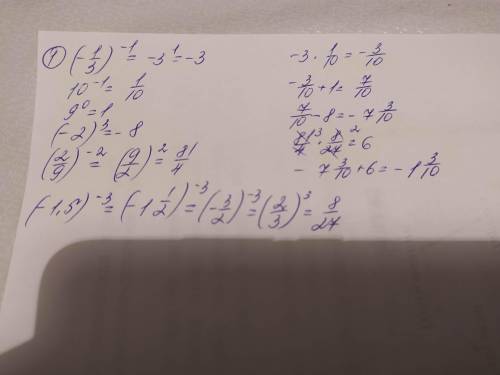 ① (-1/3)⁻¹ = -3¹ = -3
10⁻¹ = 1/10
9⁰ = 1
(-2)³ = -8
(2/9)⁻² = (9/2)² = 81/4
(-1,5)⁻³ = (-1 1/2)⁻³ = (-3/2)⁻³ = (2/3)³ = 8/27
-3 · 1/10 = -3/10
-3/10 + 1 = 7/10
7/10 - 8 = -7 3/10
81³/4 · 8²/27 = 6
- 7 3/10 + 6 = -1 3/10